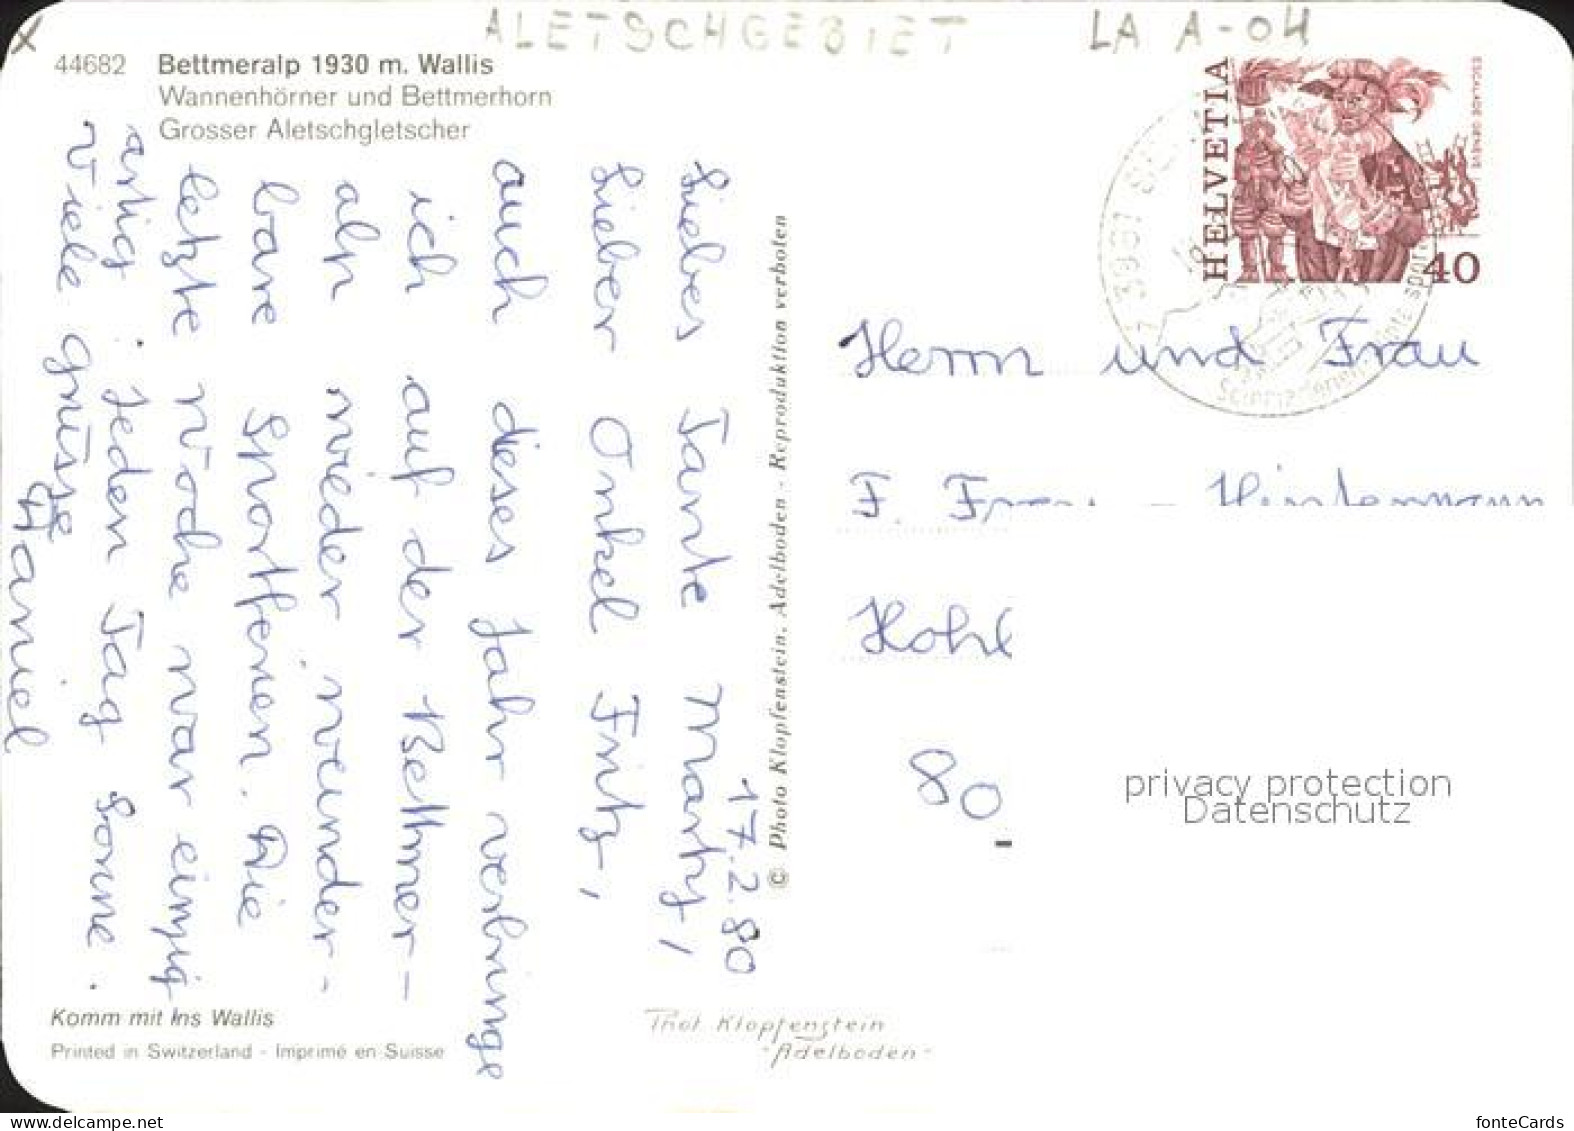 ALETSCHGEBIET
LA A-04
44682 Bettmeralp 1930 m. Wallis
Wannenhörner und Bettmerhorn
Grosser Aletschgletscher
HELVETIA
ESCALADE GENÈVE
40
17.2.80
Liebes Tante Marty,
Lieber Onkel Fritz,
auch dieses Jahr verbringe
ich auf der Bettmer-
alp wieder wunder-
bare Sportferien. Die
letzte Woche war einzig
artig. Jeden Tag Sonne.
Viele Grüsse
Daniel
© Photo Klopfenstein, Adelboden - Reproduktion verboten
Herrn und Frau
F. - Hintermann
80
privacy protection
Datenschutz
Komm mit ins Wallis
Printed in Switzerland - Imprimé en Suisse
Phot Klopfenstein
- Adelboden -
www.delcampe.net
fonteCards